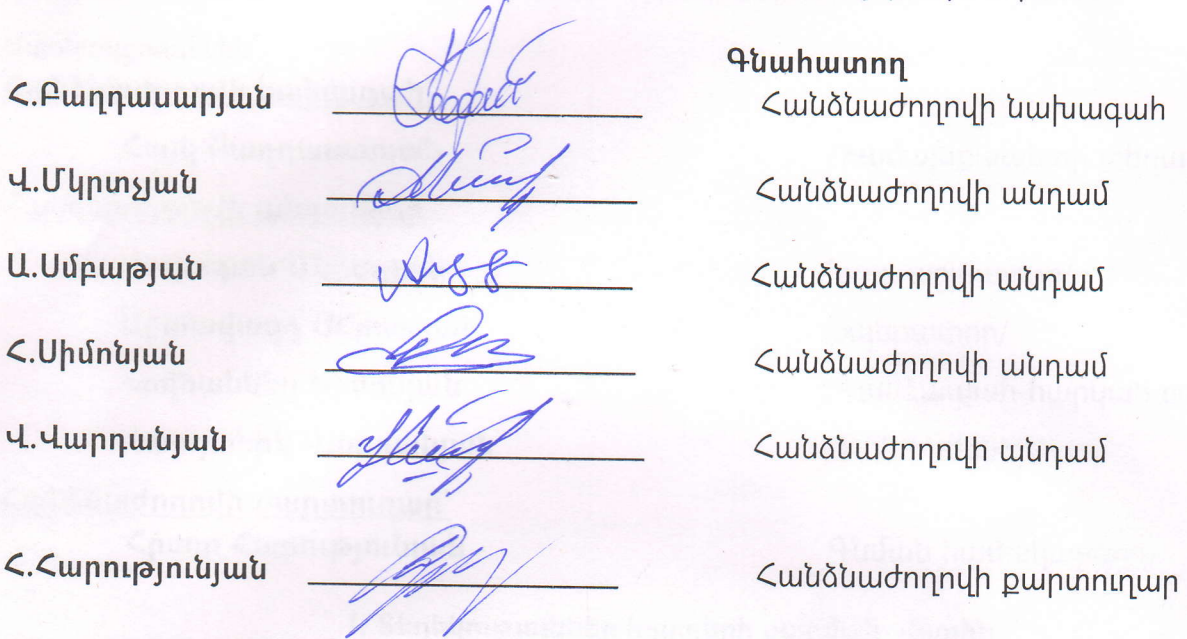 Գնահատող
Հ.Բաղդասարյան Հանձնաժողովի նախագահ
Վ.Մկրտչյան Հանձնաժողովի անդամ
Ա.Սմբաթյան Հանձնաժողովի անդամ
Հ.Սիմոնյան Հանձնաժողովի անդամ
Վ.Վարդանյան Հանձնաժողովի անդամ
Հ.Հարությունյան Հանձնաժողովի քարտուղար